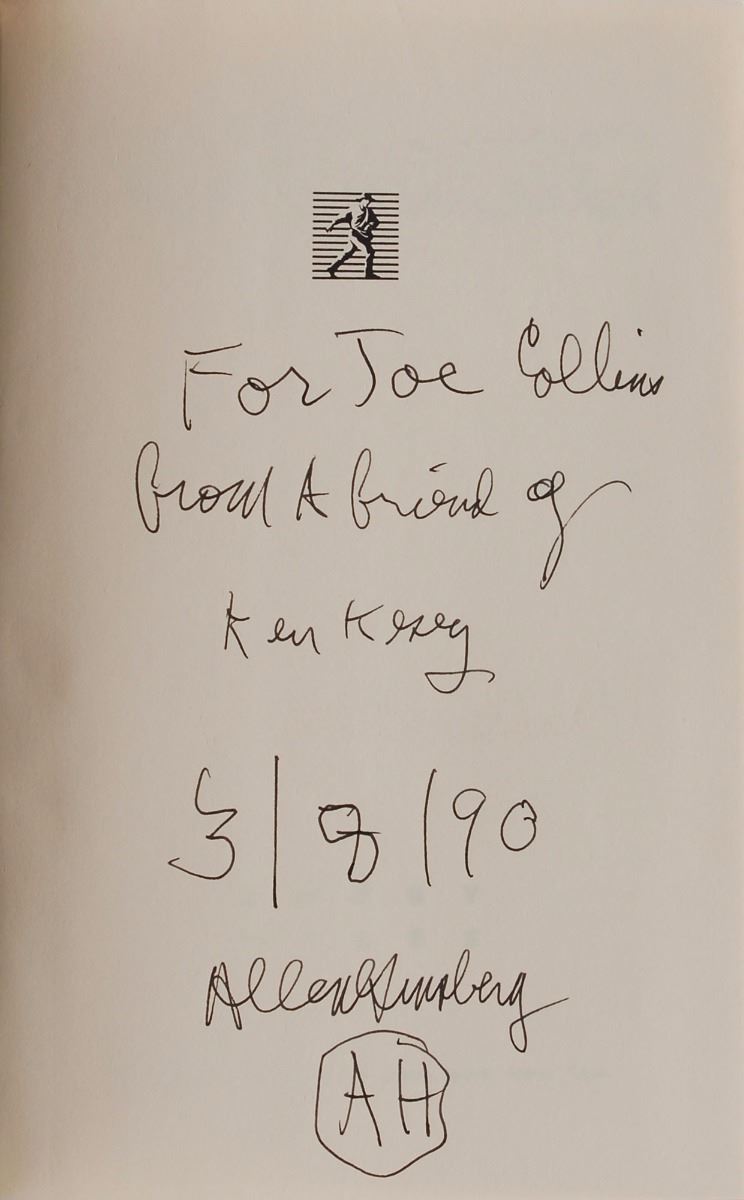 For Joe Collins
from A friend of
Ken Kesey
3/8/90
Allen Ginsberg
AH